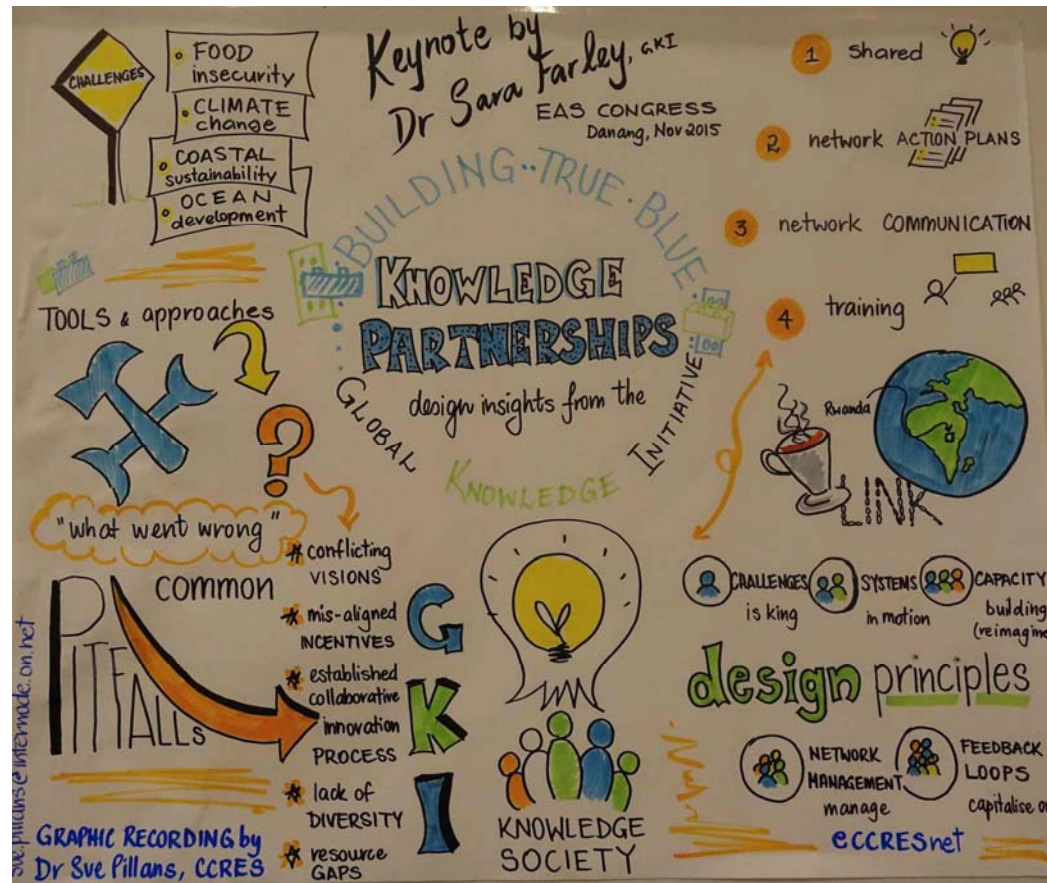 CHALLENGES
FOOD
insecurity
CLIMATE
change
COASTAL
sustainability
OCEAN
development
Keynote by
Dr Sara Farley, GKI
EAS CONGRESS
Danang, Nov 2015
1 shared
2 network ACTION PLANS
3 network COMMUNICATION
4 training
BUILDING TRUE BLUE
KNOWLEDGE
PARTNERSHIPS
design insights from the
GLOBAL
KNOWLEDGE
INITIATIVE
TOOLS & approaches
?
"what went wrong"
COMMON
PITFALLS
# conflicting
VISIONS
mis-aligned
INCENTIVES
established
collaborative
innovation
PROCESS
lack of
DIVERSITY
resource
GAPS
G
K
I
KNOWLEDGE
SOCIETY
Rwanda
LINK
CHALLENGES
is king
SYSTEMS
in motion
CAPACITY
building
(reimagine
design principles
NETWORK
MANAGEMENT
manage
FEEDBACK
LOOPS
capitalise
@CCRESnet
GRAPHIC RECORDING by
Dr Sue Pillans, CCRES